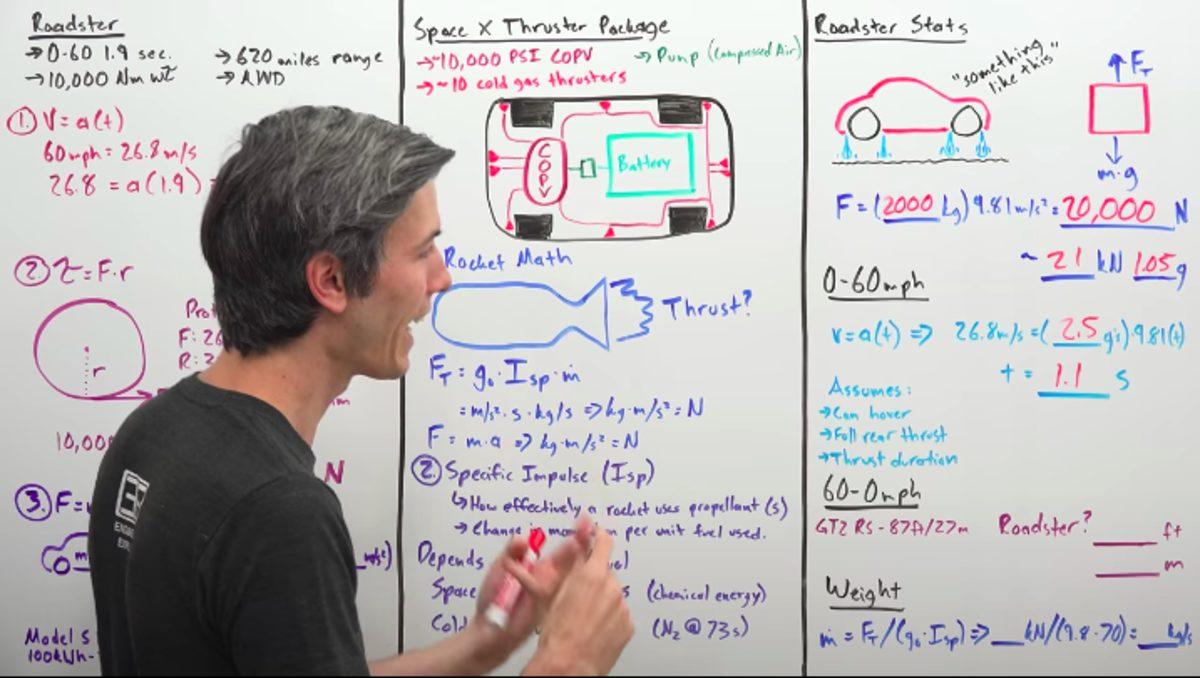 Roadster
→ 0-60 1.9 sec.
→ 620 miles range
→ 10,000 Nm wτ
→ AWD
1. V = a(t)
60mph = 26.8 m/s
26.8 = a(1.9)
2. τ = F·r
r
F: 26
R:
10,00
N
3. F =
m
Model S
100kWh-
Space X Thruster Package
→ ~10,000 PSI COPV
→ Pump (Compressed Air)
→ ~10 cold gas thrusters
COPV
Battery
Rocket Math
Thrust?
F_T = g₀·Isp·ṁ
= m/s²·s·kg/s ⇒ kg·m/s² = N
F = m·a ⇒ kg·m/s² = N
2. Specific Impulse (Isp)
↳ How effectively a rocket uses propellant (s)
→ Change in per unit fuel used.
Depends
Space (chemical energy)
Cold (N₂ @ 73s)
Roadster Stats
"something like this"
F_T
m·g
F = (2000 kg) 9.81 m/s² = 20,000 N
~ 21 kN 1.05 g
0-60mph
v = a(t) ⇒ 26.8m/s = (2.5 g's)·9.81(t)
t = 1.1 s
Assumes:
→ Can hover
→ Full rear thrust
→ Thrust duration
60-0mph
GT2 RS - 87ft/27m Roadster? ___ ft
___ m
Weight
ṁ = F_T/(g₀·Isp) ⇒ ___ kN/(9.8·70) = ___ kg/s